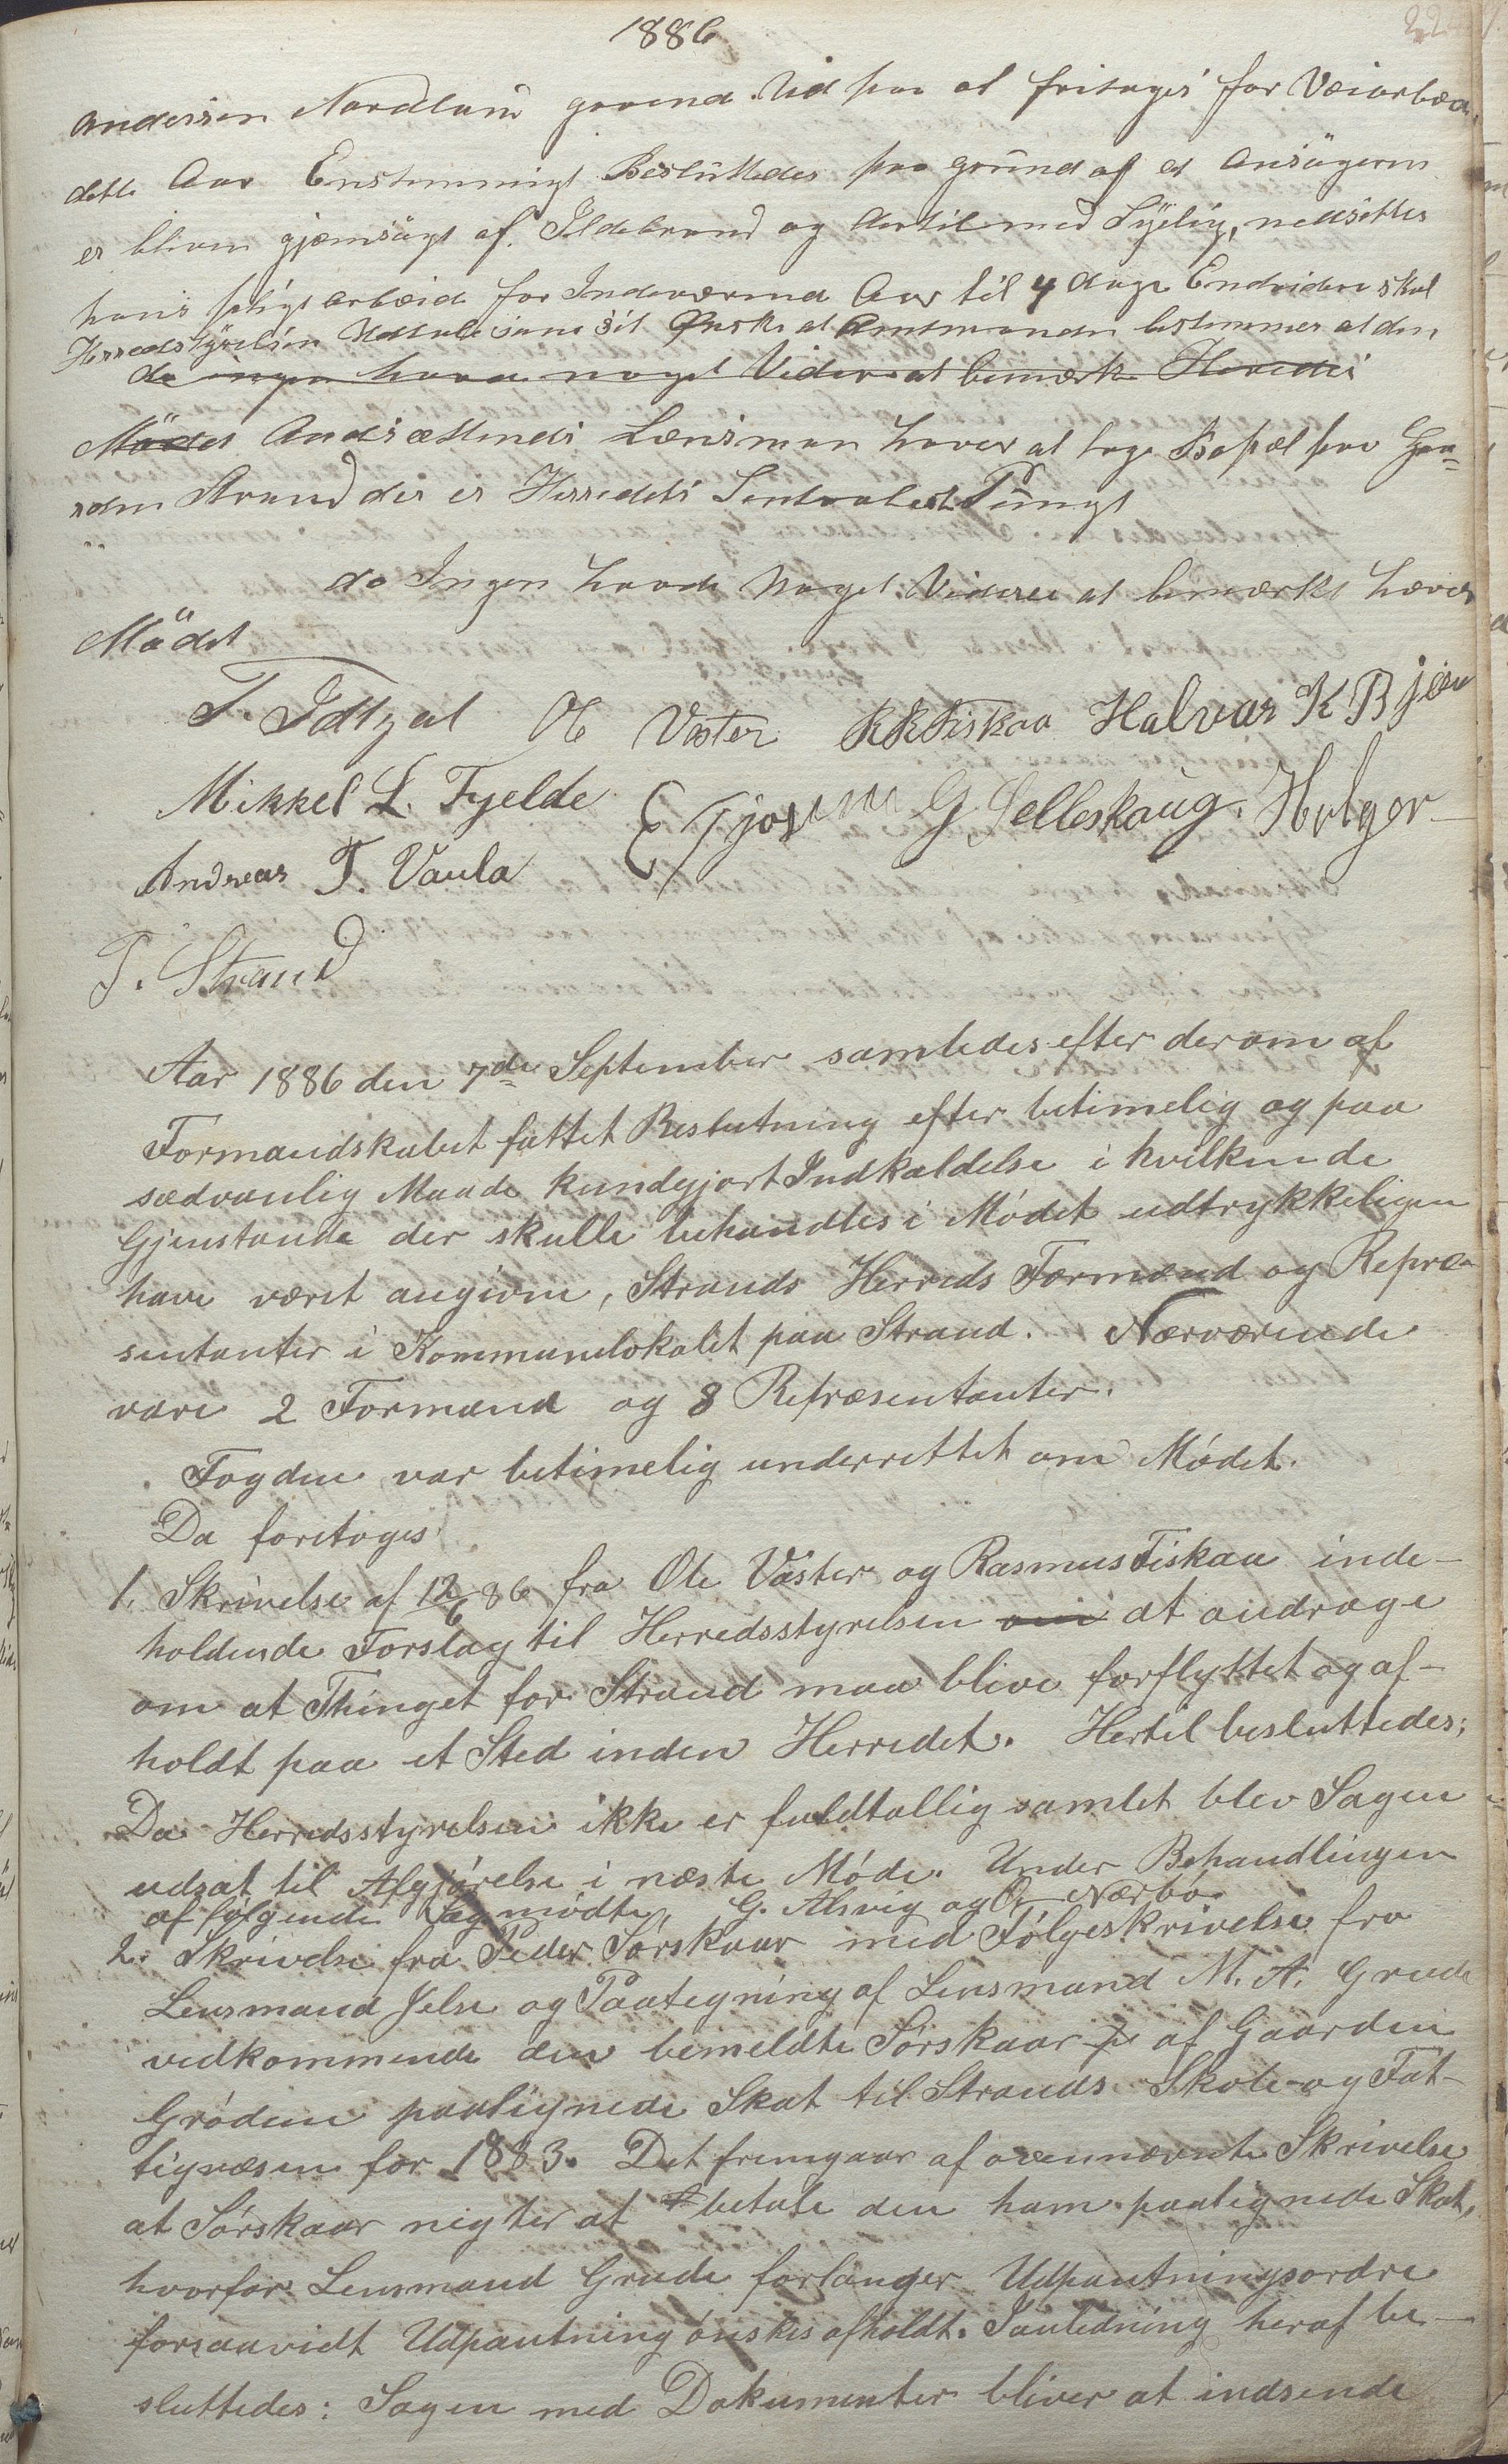 1886
Anderssen Nordland gaaend. Ud paa at fritages for Væiarbæd
dette Aar Enstemmigt Besluttedes paa grund af at Ansøgeren
er bleven gjæmsøgt af Ildebrand og dertil med Sÿelig, nedsættes
hans pligtarbæid for Indeværend Aar til 4 dage Endvidere skal
Herredstÿrelsen Udtale som sit Ønske at Amtmanden bestemmer at den
da ingen havde noget Videre at bemærke Hævedes
Mödet Andsættendes Lænsman haver at tage Bopæl paa Gaa=
rden Strand der er Herredets Sentralest Pungt
da Ingen havde noget Videre at bemærke hæves
Mödet
T. Idtzøl Ol Vøster RRFiskaa Halvar K Bjøn
Mikkel L. Fjelde E Tjøstem G Selleskaug. Holger
Andreas T. Vaula
T. Strand
Aar 1886 den 7de September samledes efter derom af
Formandskabet fattet Beslutning efter betimelig og paa
sædvanlig Maade kundgjort Indkaldelse i hvilken de
Gjenstande der skulle behandles i Mödet udtrykkeligen
have været angivne, Strands Herreds Formænd og Repræ-
sentanter i Kommunelokalet paa Strand. Nærværende
vare 2 Formænd og 8 Repræsentanter.
Fogden var betimelig underrettet om Mödet.
Da foretoges
1. Skrivelse af 12/6 86 fra Ole Vöster og Rasmus Fiskaa inde-
holdende Forslag til Herredsstyrelsen om at andrage
om at Thinget for Strand maa blive forflyttet og af-
holdt paa et Sted inden Herredet. Hertil besluttedes;
Da Herredsstyrelsen ikke er fuldtallig samlet blev Sagen
udsat til Afgjörelse i næste Möde. Under Behandlingen
af fölgende Sag mödte G. Alsvig og O. Nærbö.
2. Skrivelse fra Peder Sörskaar med Fölgeskrivelse fra
Lensmand Jelse og Paategning af Lensmand M. A. Grude
vedkommende den bemeldte Sörskaar af Gaarden
Gröden paalignede Skat til Strands Skole- og Fat-
tigvæsen for 1883. Det fremgaar af ovennævnte Skrivelse
at Sörskaar nægter at betale den ham paalignede Skat,
hvorfor Lensmand Grude forlanger Udpantningsordre
forsaavidt Udpantning önskes afholdt. I anledning heraf be-
sluttedes: Sagen med Dokumenter bliver at indsende